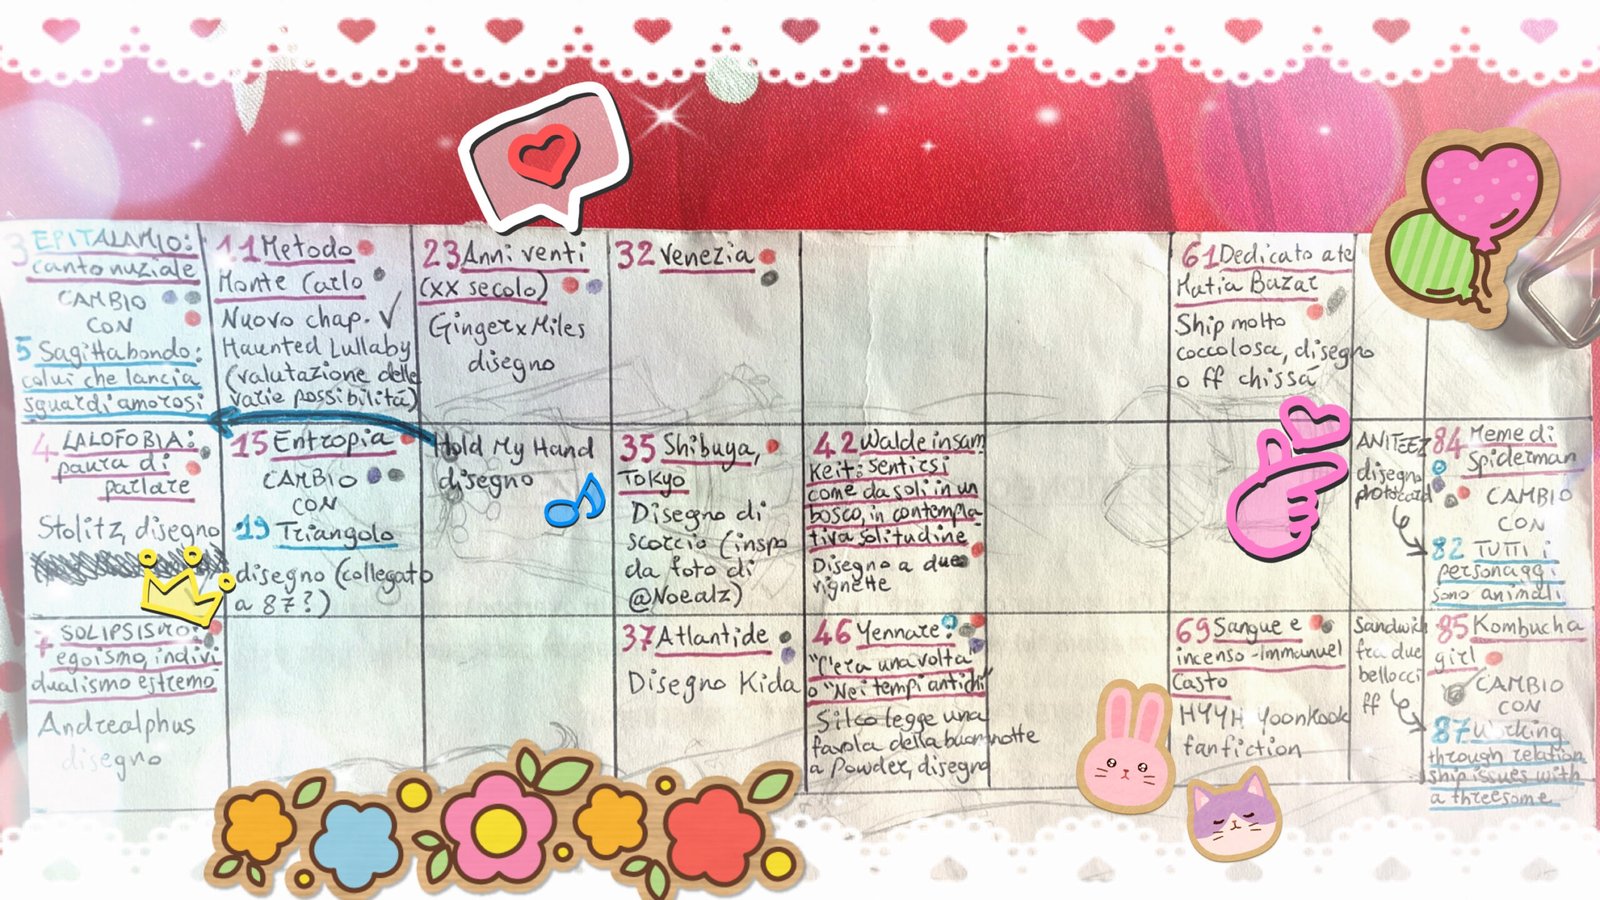 3 EPITALAMIO:
canto nuziale
CAMBIO
CON
5 Sagittabondo:
colui che lancia
sguardi amorosi
11 Metodo
Monte Carlo
Nuovo chap. ✓
Haunted Lullaby
(valutazione delle
varie possibilità)
23 Anni venti
(XX secolo)
Ginger x Miles
disegno
32 Venezia
61 Dedicato a te
Matia Bazar
Ship molto
coccolosa, disegno
o ff chissà
4 LALOFOBIA:
paura di
parlare
Stolitz, disegno
15 Entropia
CAMBIO
CON
19 Triangolo
disegno (collegato
a 87?)
Hold My Hand
disegno
35 Shibuya,
Tokyo
Disegno di
scorcio (inspo
da foto di
@Noealz)
42 Waldeinsam
keit: sentirsi
come da soli in un
bosco, in contempla
tiva solitudine
Disegno a due
vignette
ANITEEZ
disegno
photocard
84 Meme di
Spiderman
CAMBIO
CON
82 TUTTI i
personaggi
sono animali
7 SOLIPSISMO:
egoismo, indivi
dualismo estremo
Andrealphus
disegno
37 Atlantide
Disegno Kida
46 Yennare:
"C'era una volta"
o "Nei tempi antichi"
Silco legge una
favola della buonanotte
a Powder, disegno
69 Sangue e
incenso - Immanuel
Casto
HYYH Yoonkook
fanfiction
Sandwich
fra due
bellocci
ff
85 Kombucha
girl
CAMBIO
CON
87 Working
through relation
ship issues with
a threesome